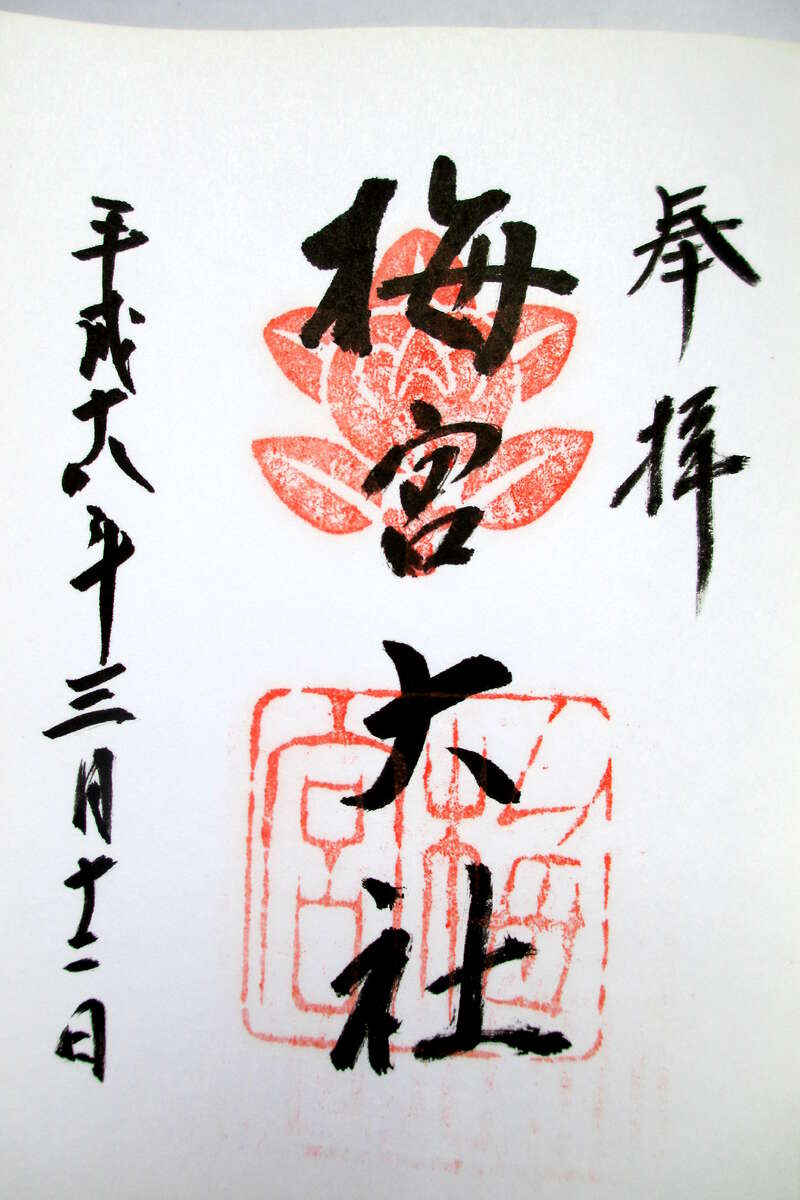 奉拝
梅宮大社
梅宮
平成十八年三月十二日